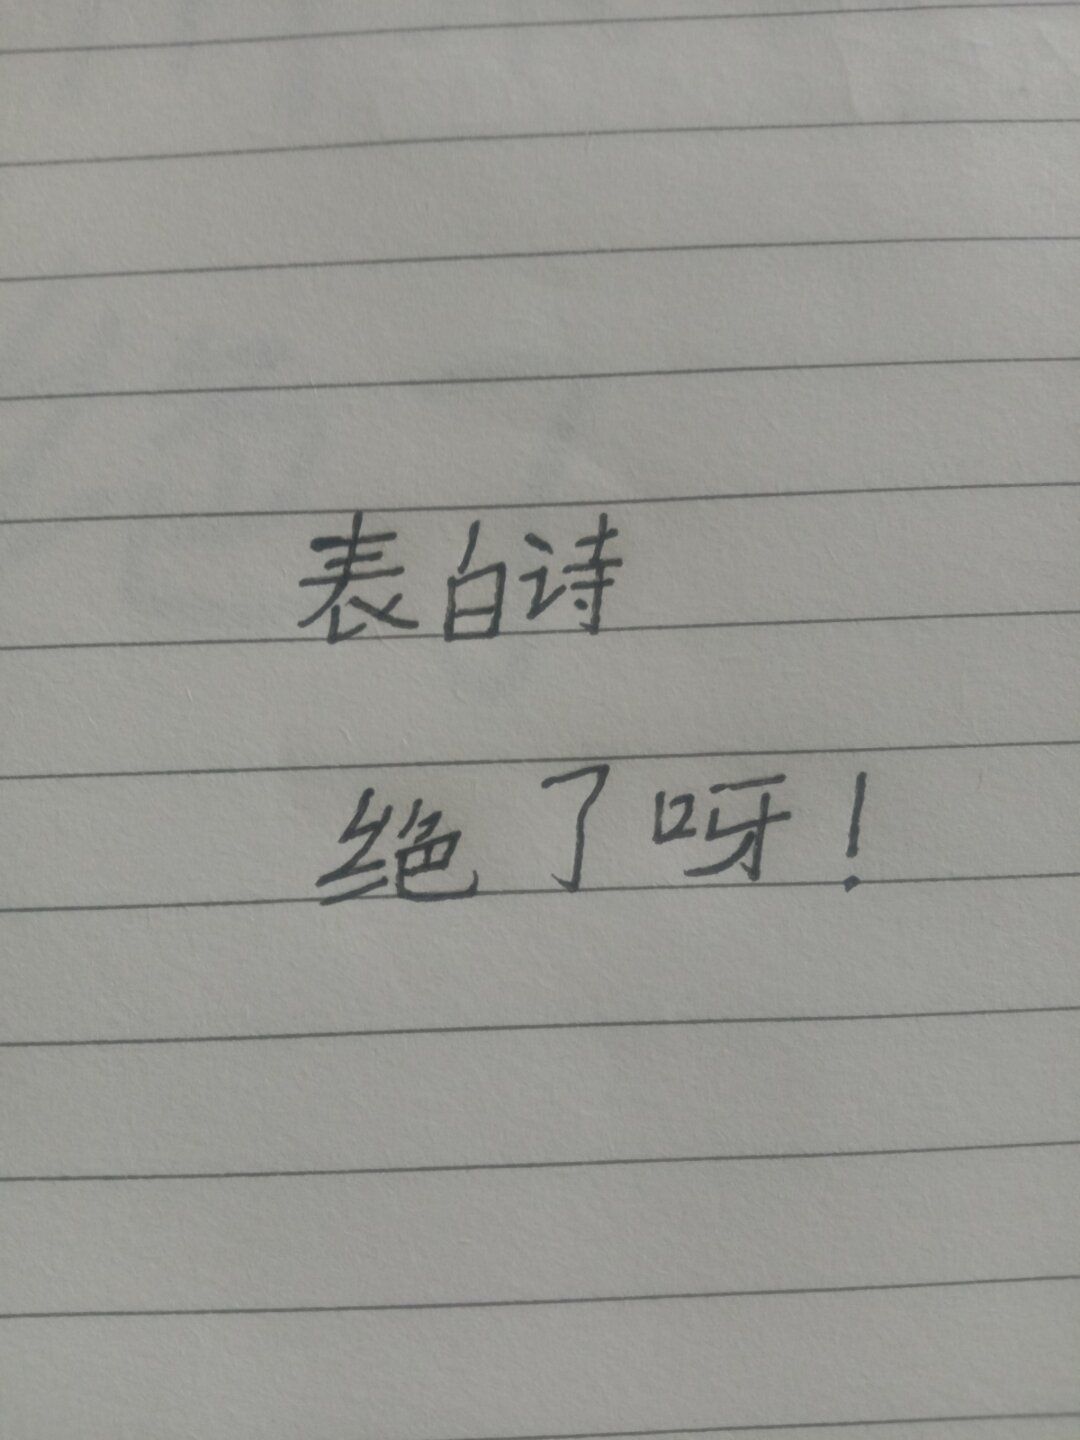 表白诗
绝了呀!